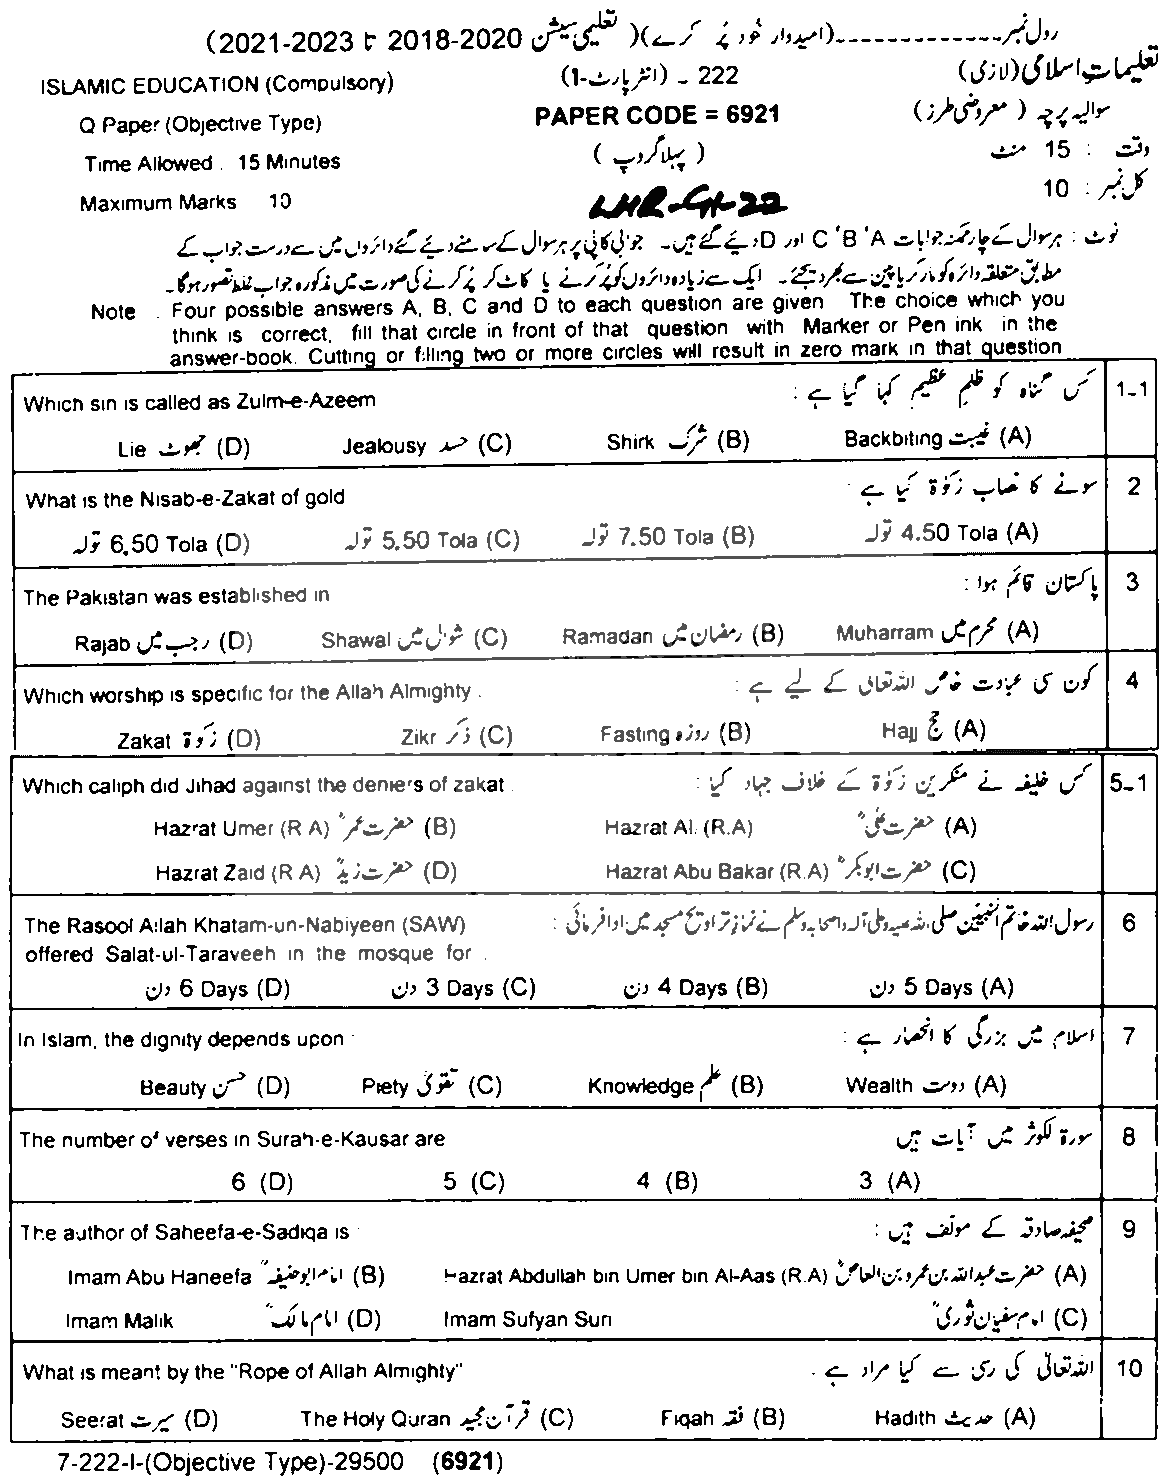 رول نمبر-------------(امیدوار خود پُر کرے)( تعلیمی سیشن 2020-2018 تا 2023-2021)
تعلیمات اسلامی (لازمی)
222 ۔ (انٹر پارٹ-1)
ISLAMIC EDUCATION (Compulsory)
سوالیہ پرچہ ( معروضی طرز)
PAPER CODE = 6921
Q Paper (Objective Type)
وقت : 15 منٹ
( پہلا گروپ )
Time Allowed . 15 Minutes
کل نمبر : 10
LHR-G1-22
Maximum Marks 10
نوٹ : ہر سوال کے چار ممکنہ جوابات A' B' C اور D دیئے گئے ہیں۔ جوابی کاپی پر ہر سوال کے سامنے دیئے گئے دائروں میں سے درست جواب کے
مطابق متعلقہ دائرہ کو مارکر یا پین سے بھر دیجئے۔ ایک سے زیادہ دائروں کو پُر کرنے یا کاٹ کر پُر کرنے کی صورت میں مذکورہ جواب غلط تصور ہوگا۔
Note . Four possible answers A, B, C and D to each question are given The choice which you
think is correct, fill that circle in front of that question with Marker or Pen ink in the
answer-book. Cutting or filling two or more circles will result in zero mark in that question
1-1 کس گناہ کو ظلمِ عظیم کہا گیا ہے : Which sin is called as Zulm-e-Azeem
(A) غیبت Backbiting (B) شرک Shirk (C) حسد Jealousy (D) جھوٹ Lie
2 سونے کا نصاب زکوٰۃ کیا ہے : What is the Nisab-e-Zakat of gold
(A) 4.50 Tola تولہ (B) 7.50 Tola تولہ (C) 5.50 Tola تولہ (D) 6.50 Tola تولہ
3 پاکستان قائم ہوا : The Pakistan was established in
(A) محرم میں Muharram (B) رمضان میں Ramadan (C) شوال میں Shawal (D) رجب میں Rajab
4 کون سی عبادت خاص اللہ تعالیٰ کے لیے ہے : Which worship is specific for the Allah Almighty .
(A) حج Hajj (B) روزہ Fasting (C) ذکر Zikr (D) زکوٰۃ Zakat
5-1 کس خلیفہ نے منکرین زکوٰۃ کے خلاف جہاد کیا : Which caliph did Jihad against the deniers of zakat .
(A) حضرت علیؓ Hazrat Al. (R.A) (B) حضرت عمرؓ Hazrat Umer (R A)
(C) حضرت ابوبکرؓ Hazrat Abu Bakar (R.A) (D) حضرت زیدؓ Hazrat Zaid (R A)
6 رسول اللہ خاتم النبیین صلی اللہ علیہ وعلی آلہ واصحابہ وسلم نے نماز تراویح مسجد میں ادا فرمائی : The Rasool Allah Khatam-un-Nabiyeen (SAW)
offered Salat-ul-Taraveeh in the mosque for .
(A) 5 Days دن (B) 4 Days دن (C) 3 Days دن (D) 6 Days دن
7 اسلام میں بزرگی کا انحصار ہے : In Islam, the dignity depends upon
(A) دولت Wealth (B) علم Knowledge (C) تقویٰ Piety (D) حسن Beauty
8 سورۃ الکوثر میں آیات ہیں The number of verses in Surah-e-Kausar are
(A) 3 (B) 4 (C) 5 (D) 6
9 صحیفہ صادقہ کے مولف ہیں : The author of Saheefa-e-Sadiqa is
(A) حضرت عبداللہ بن عمرو بن العاصؓ Hazrat Abdullah bin Umer bin Al-Aas (R.A) (B) امام ابو حنیفہؒ Imam Abu Haneefa
(C) امام سفیان ثوریؒ Imam Sufyan Suri (D) امام مالکؒ Imam Malik
10 اللہ تعالیٰ کی رسی سے کیا مراد ہے . What is meant by the "Rope of Allah Almighty"
(A) حدیث Hadith (B) فقہ Fiqah (C) قرآن مجید The Holy Quran (D) سیرت Seerat
7-222-I-(Objective Type)-29500 (6921)